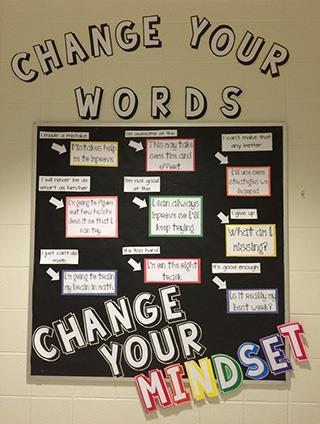 CHANGE YOUR
WORDS
I made a mistake
Mistakes help
me to improve.
I'm awesome at this
This may take
some time and
effort.
I can't make that
any better.
I'll use some
strategies I've
learned.
I will never be as
smart as him/her
I'm going to figure
out how he/she
does it so that I
can try.
I'm not good
at this
I can always
improve so I'll
keep trying.
I give up
What am I
missing?
I just can't do
math.
I'm going to train
my brain in math.
It's too hard
I'm on the right
track.
It's good enough
Is it really my
best work?
CHANGE
YOUR
MINDSET